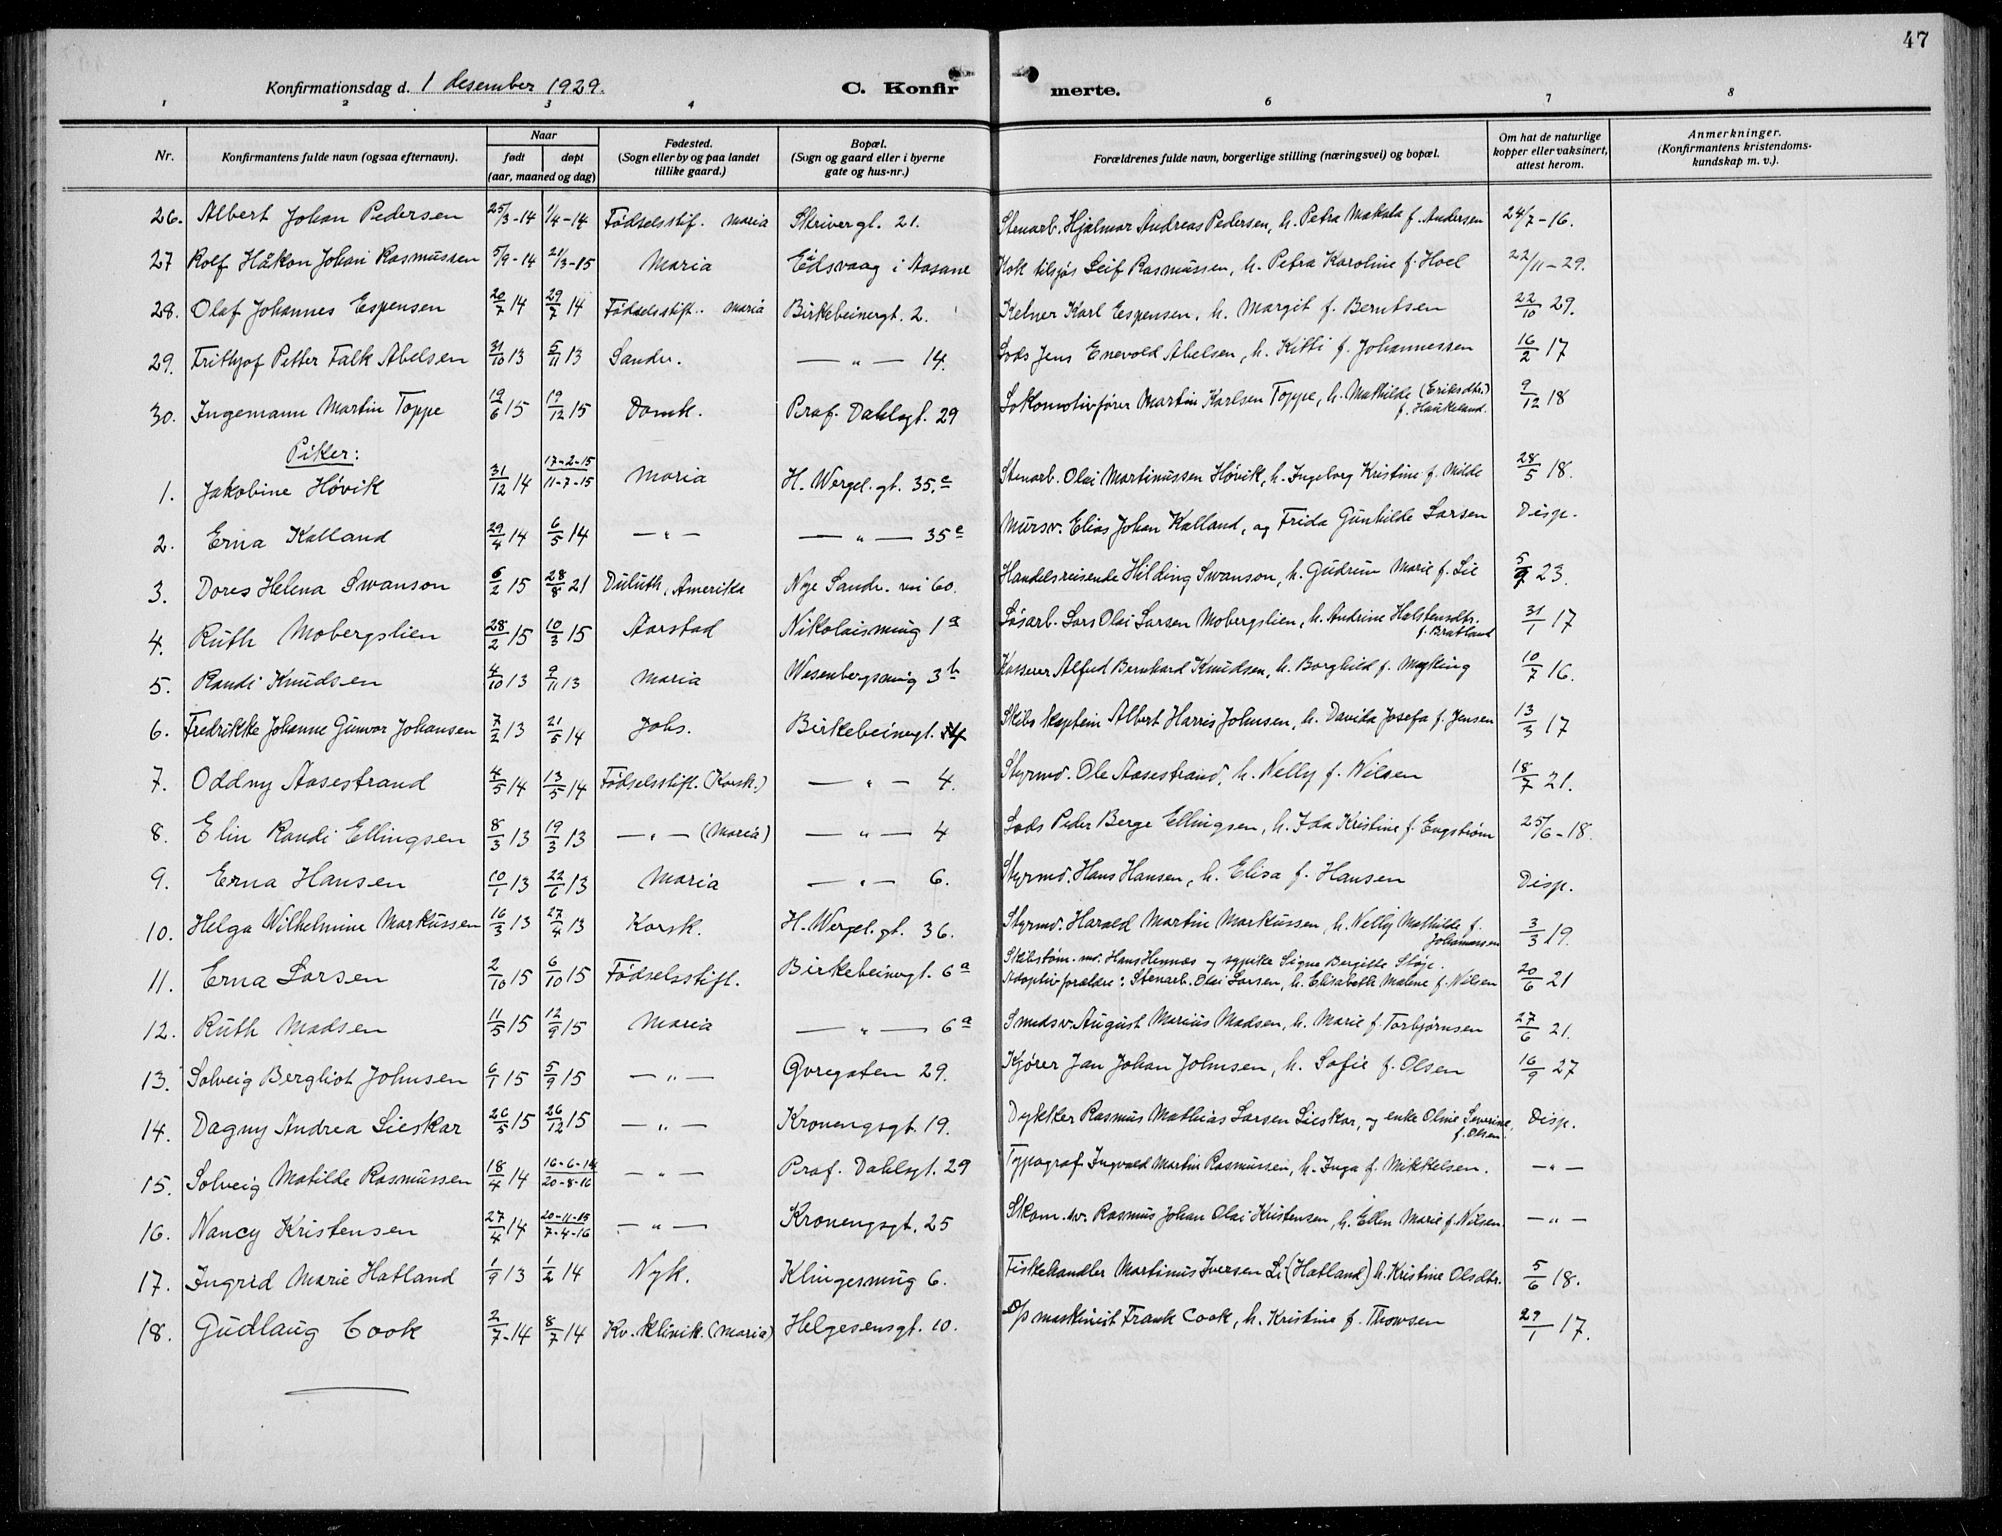 47
Konfirmationsdag d. 1 desember 1929. C. Konfir merte.
1 2 3 4 6 7 8
Nr. Konfirmantens fulde navn (ogsaa efternavn). Naar født døpt (aar, maaned og dag) Fødested. (Sogn eller by og paa landet tillike gaard.) Bopæl. (Sogn og gaard eller i byerne gate og hus-nr.) Forældrenes fulde navn, borgerlige stilling (næringsvei) og bopæl. Om hat de naturlige kopper eller vaksinert, attest herom. Anmerkninger. (Konfirmantens kristendoms-kundskap m. v.).
26. Albert Johan Pedersen 25/3-14 1/4-14 Fødselsstif. Maria Skrivergt. 21. Stenarb. Hjalmar Andreas Pedersen, h. Petra Makala f. Andersen 24/7-16.
27 Rolf Håkon Johan Rasmussen 5/9-14 21/3-15 Maria Eidsvaag i Aasane Kok tilsjøs Leif Rasmussen, h. Petra Karoline f. Hoel 22/11-29.
28. Olaf Johannes Espensen 20/7 14 29/7 14 Fødselsstift. Maria Birkebeinergt. 2. Kelner Karl Espensen, h. Margit f. Berntsen 22/10 29.
29. Frithjof Petter Falk Abelsen 31/10 13 5/11 13 Sandv. — " — 14. Lods Jens Enevold Abelsen, h. Kitti f. Johannessen 16/2 17
30. Ingemann Martin Toppe 19/6 15 19/12 15 Domk. Prof. Dahlsgt. 29 Lokomotivfører Martin Karlsen Toppe, h. Mathilde (Eriksdtr.) f. Haukeland. 9/12 18
Piker:
1. Jakobine Høvik 31/12 14 17-2-15 11-7-15 Maria H. Wergel. gt. 35.e Stenarb. Olai Martinussen Høvik, h. Ingeborg Kristine f. Milde 28/5 18.
2. Erna Kalland 29/4 14 6/5 14 — " — — " — 35e Mursv. Elias Johan Kalland, og Frida Gunhilde Larsen Disp.
3. Dores Helena Swanson 6/2 15 28/8 21 Duluth, Amerika Nye Sandv. vei 60. Handelsreisende Hilding Swanson, h. Gudrun Marie f. Lie 5/9 23.
4. Ruth Mobergslien 28/2 15 10/3 15 Aarstad Nikolaismug 1a Løsarb. Lars Olai Larsen Mobergslien, h. Andrine Halstensdtr. f. Bratland 31/1 17
5. Randi Knudsen 4/10 13 9/11 13 Maria Wesenbergsmug 3b Kasserer Alfred Bernhard Knudsen, h. Borghild f. Myking 10/7 16.
6. Fredrikke Johanne Gunvor Johansen 7/2 13 21/5 14 Johs. Birkebeinergt. 4 Skibskaptein Albert Harris Johnsen, h. Davida Josefa f. Jensen 13/3 17
7. Oddny Aasestrand 4/5 14 13/5 14 Fødselsstift. (Korsk.) — " — 4. Styrmd. Ole Aasestrand, h. Nelly f. Nilsen 18/7 21.
8. Elin Randi Ellingsen 8/3 13 19/3 13 — " — (Maria) — " — 4 Lods Peder Berge Ellingsen, h. Ida Kristine f. Engstrøm 25/6-18.
9. Erna Hansen 10/1 13 22/6 13 Maria — " — 6. Styrmd. Hans Hansen, h. Elisa f. Hansen Disp.
10. Helga Wilhelmine Markussen 16/3 13 27/4 13 Korsk. H. Wergel. gt. 36. Styrmd. Harald Martin Markussen, h. Nelly Mathilde f. Johannessen 3/3 19.
11. Erna Larsen 2/10 15 6/10 15 Fødselsstift. Birkebeinergt. 6a Skibstøm. md. Hans Hennæs og sypike Signe Bergitte Støje. Adoptivforældre: Stenarb. Olai Larsen, h. Elisabeth Maline f. Nilsen 20/6 21
12. Ruth Madsen 11/5 15 12/9 15 Maria — " — 6a Smedsv. August Marius Madsen, h. Marie f. Torbjørnsen 27/6 21.
13. Solveig Bergliot Johnsen 6/1 15 5/9 15 — " — Øvregaten 29. Kjører Jan Johan Johnsen, h. Sofie f. Olsen 16/9 27
14. Dagny Andrea Lieskar 26/5 15 26/12 15 — " — Kronengsgt. 19. Dykker Rasmus Mathias Larsen Lieskar, og enke Oline Severine, f. Olsen. Disp.
15. Solveig Matilde Rasmussen 18/4 14 16-6-14 20-8-16 — " — Prof. Dahlsgt. 29 Typograf Ingvald Martin Rasmussen, h. Inga f. Mikkelsen. — " —
16. Nancy Kristensen 27/4 14 20-11-15 7-4-16 — " — Kronengsgt. 25 Skom. sv. Rasmus Johan Olai Kristensen, h. Ellen Marie f. Nilsen. — " —
17. Ingrid Marie Hatland 1/9 13 1/2 14 Nyk. Klingesmug 6. Fiskehandler Martinus Iversen Li (Hatland) h. Kristine Olsdtr. 5/6 18.
18. Gudlaug Cook 2/7-14 8/7 14 Kv. klinik. (Maria) Helgesensgt. 10. D/p maskinist Frank Cook, h. Kristine f. Thowsen 29/1 17.